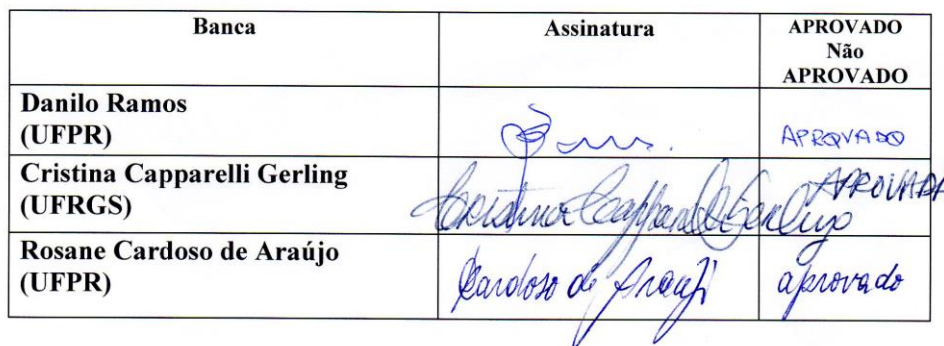 Banca Assinatura APROVADO
Não
APROVADO
Danilo Ramos
(UFPR) APROVADO
Cristina Capparelli Gerling APROVADA
(UFRGS) Cristina Capparelli Gerling
Rosane Cardoso de Araújo
(UFPR) Cardoso de Araújo aprovado